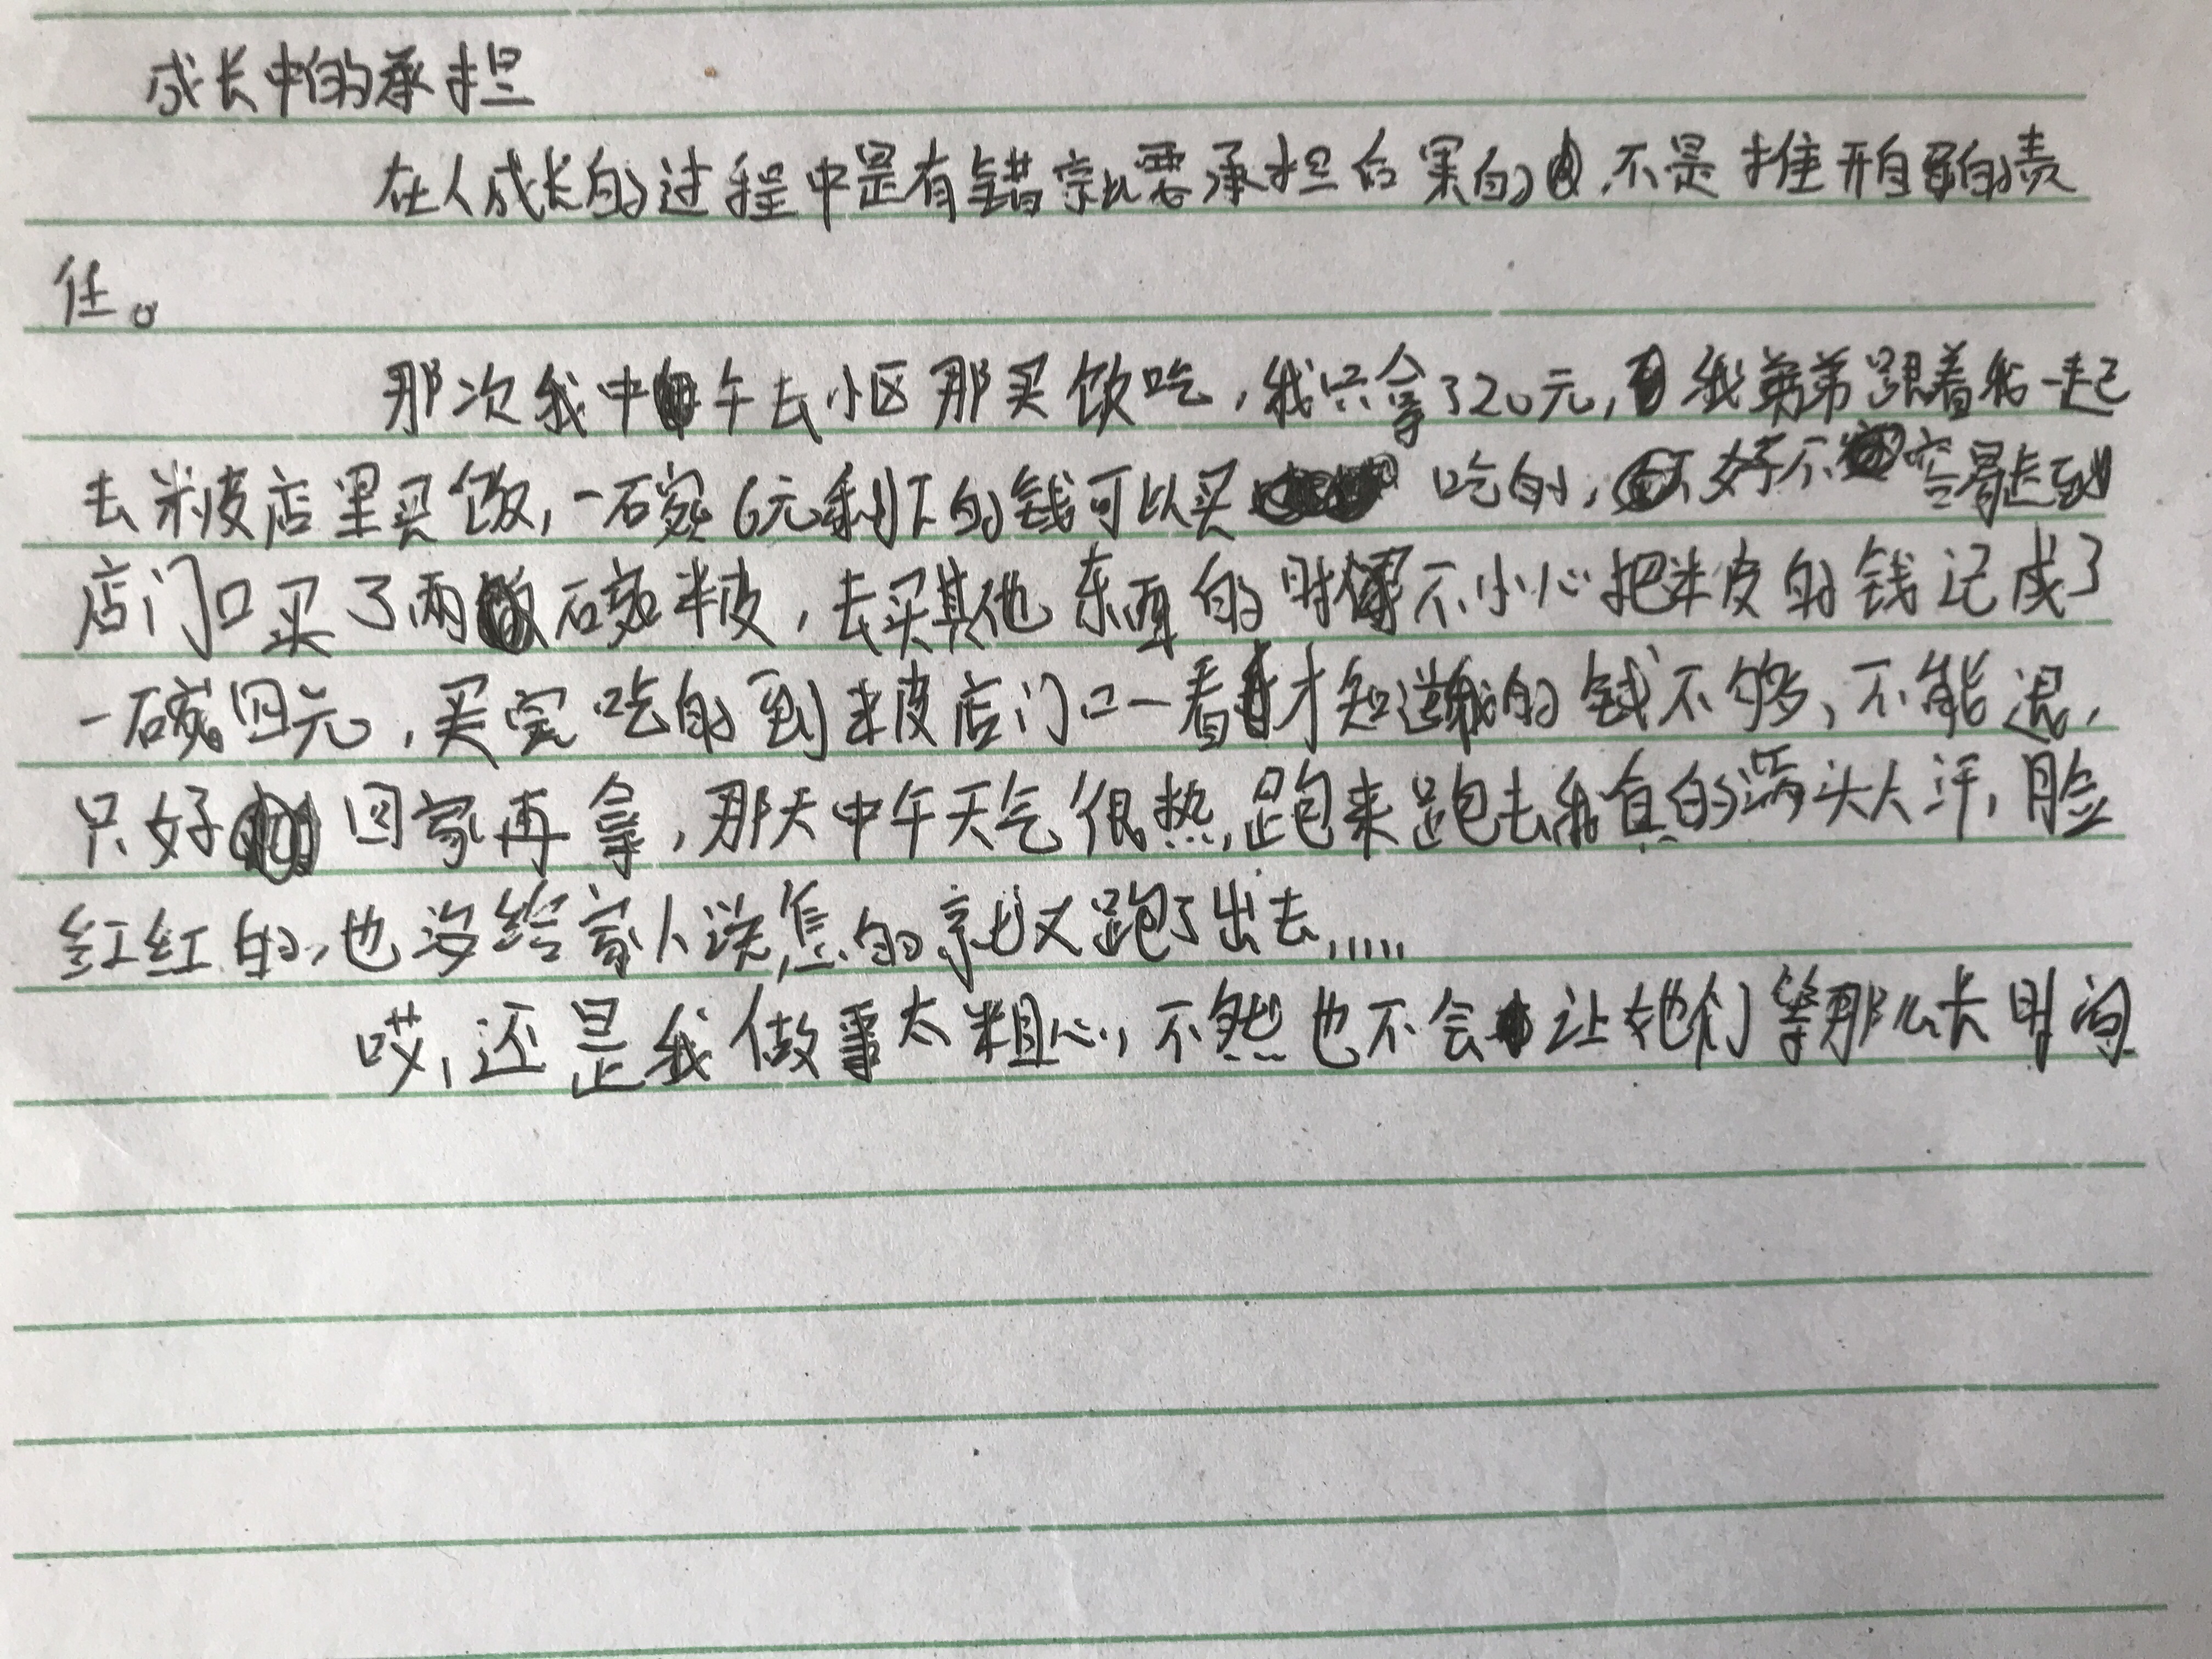 成长中的承担
在人成长的过程中是有错就要承担后果的,不是推自的责
任。
那次我中午去小区那买饭吃,我只拿了20元,我弟弟跟着我一起
去米皮店里买饭,一碗6元剩下的钱可以买吃的,好不容易走到
店门口买了两碗米皮,去买其他东西的时候不小心把米皮的钱记成了
一碗四元,买完吃的到米皮店门口一看才知道我的钱不够、不能退,
只好回家再拿,那天中午天气很热,跑来跑去我真的满头大汗,脸
红红的,也没给家人说怎的就又跑了出去......
哎,还是我做事太粗心,不然也不会让她们等那么长时间